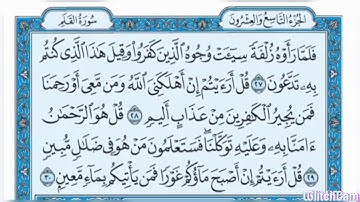 الجزء التاسع والعشرون
سورة القلم
فَلَمَّا رَأَوْهُ زُلْفَةً سِيٓـَٔتْ وُجُوهُ ٱلَّذِينَ كَفَرُوا۟ وَقِيلَ هَٰذَا ٱلَّذِى كُنتُم
بِهِۦ تَدَّعُونَ ٢٧ قُلْ أَرَءَيْتُمْ إِنْ أَهْلَكَنِىَ ٱللَّهُ وَمَن مَّعِىَ أَوْ رَحِمَنَا
فَمَن يُجِيرُ ٱلْكَٰفِرِينَ مِنْ عَذَابٍ أَلِيمٍ ٢٨ قُلْ هُوَ ٱلرَّحْمَٰنُ
ءَامَنَّا بِهِۦ وَعَلَيْهِ تَوَكَّلْنَا ۖ فَسَتَعْلَمُونَ مَنْ هُوَ فِى ضَلَٰلٍ مُّبِينٍ
٢٩ قُلْ أَرَءَيْتُمْ إِنْ أَصْبَحَ مَآؤُكُمْ غَوْرًا فَمَن يَأْتِيكُم بِمَآءٍ مَّعِينٍۭ ٣٠
GlitchCam